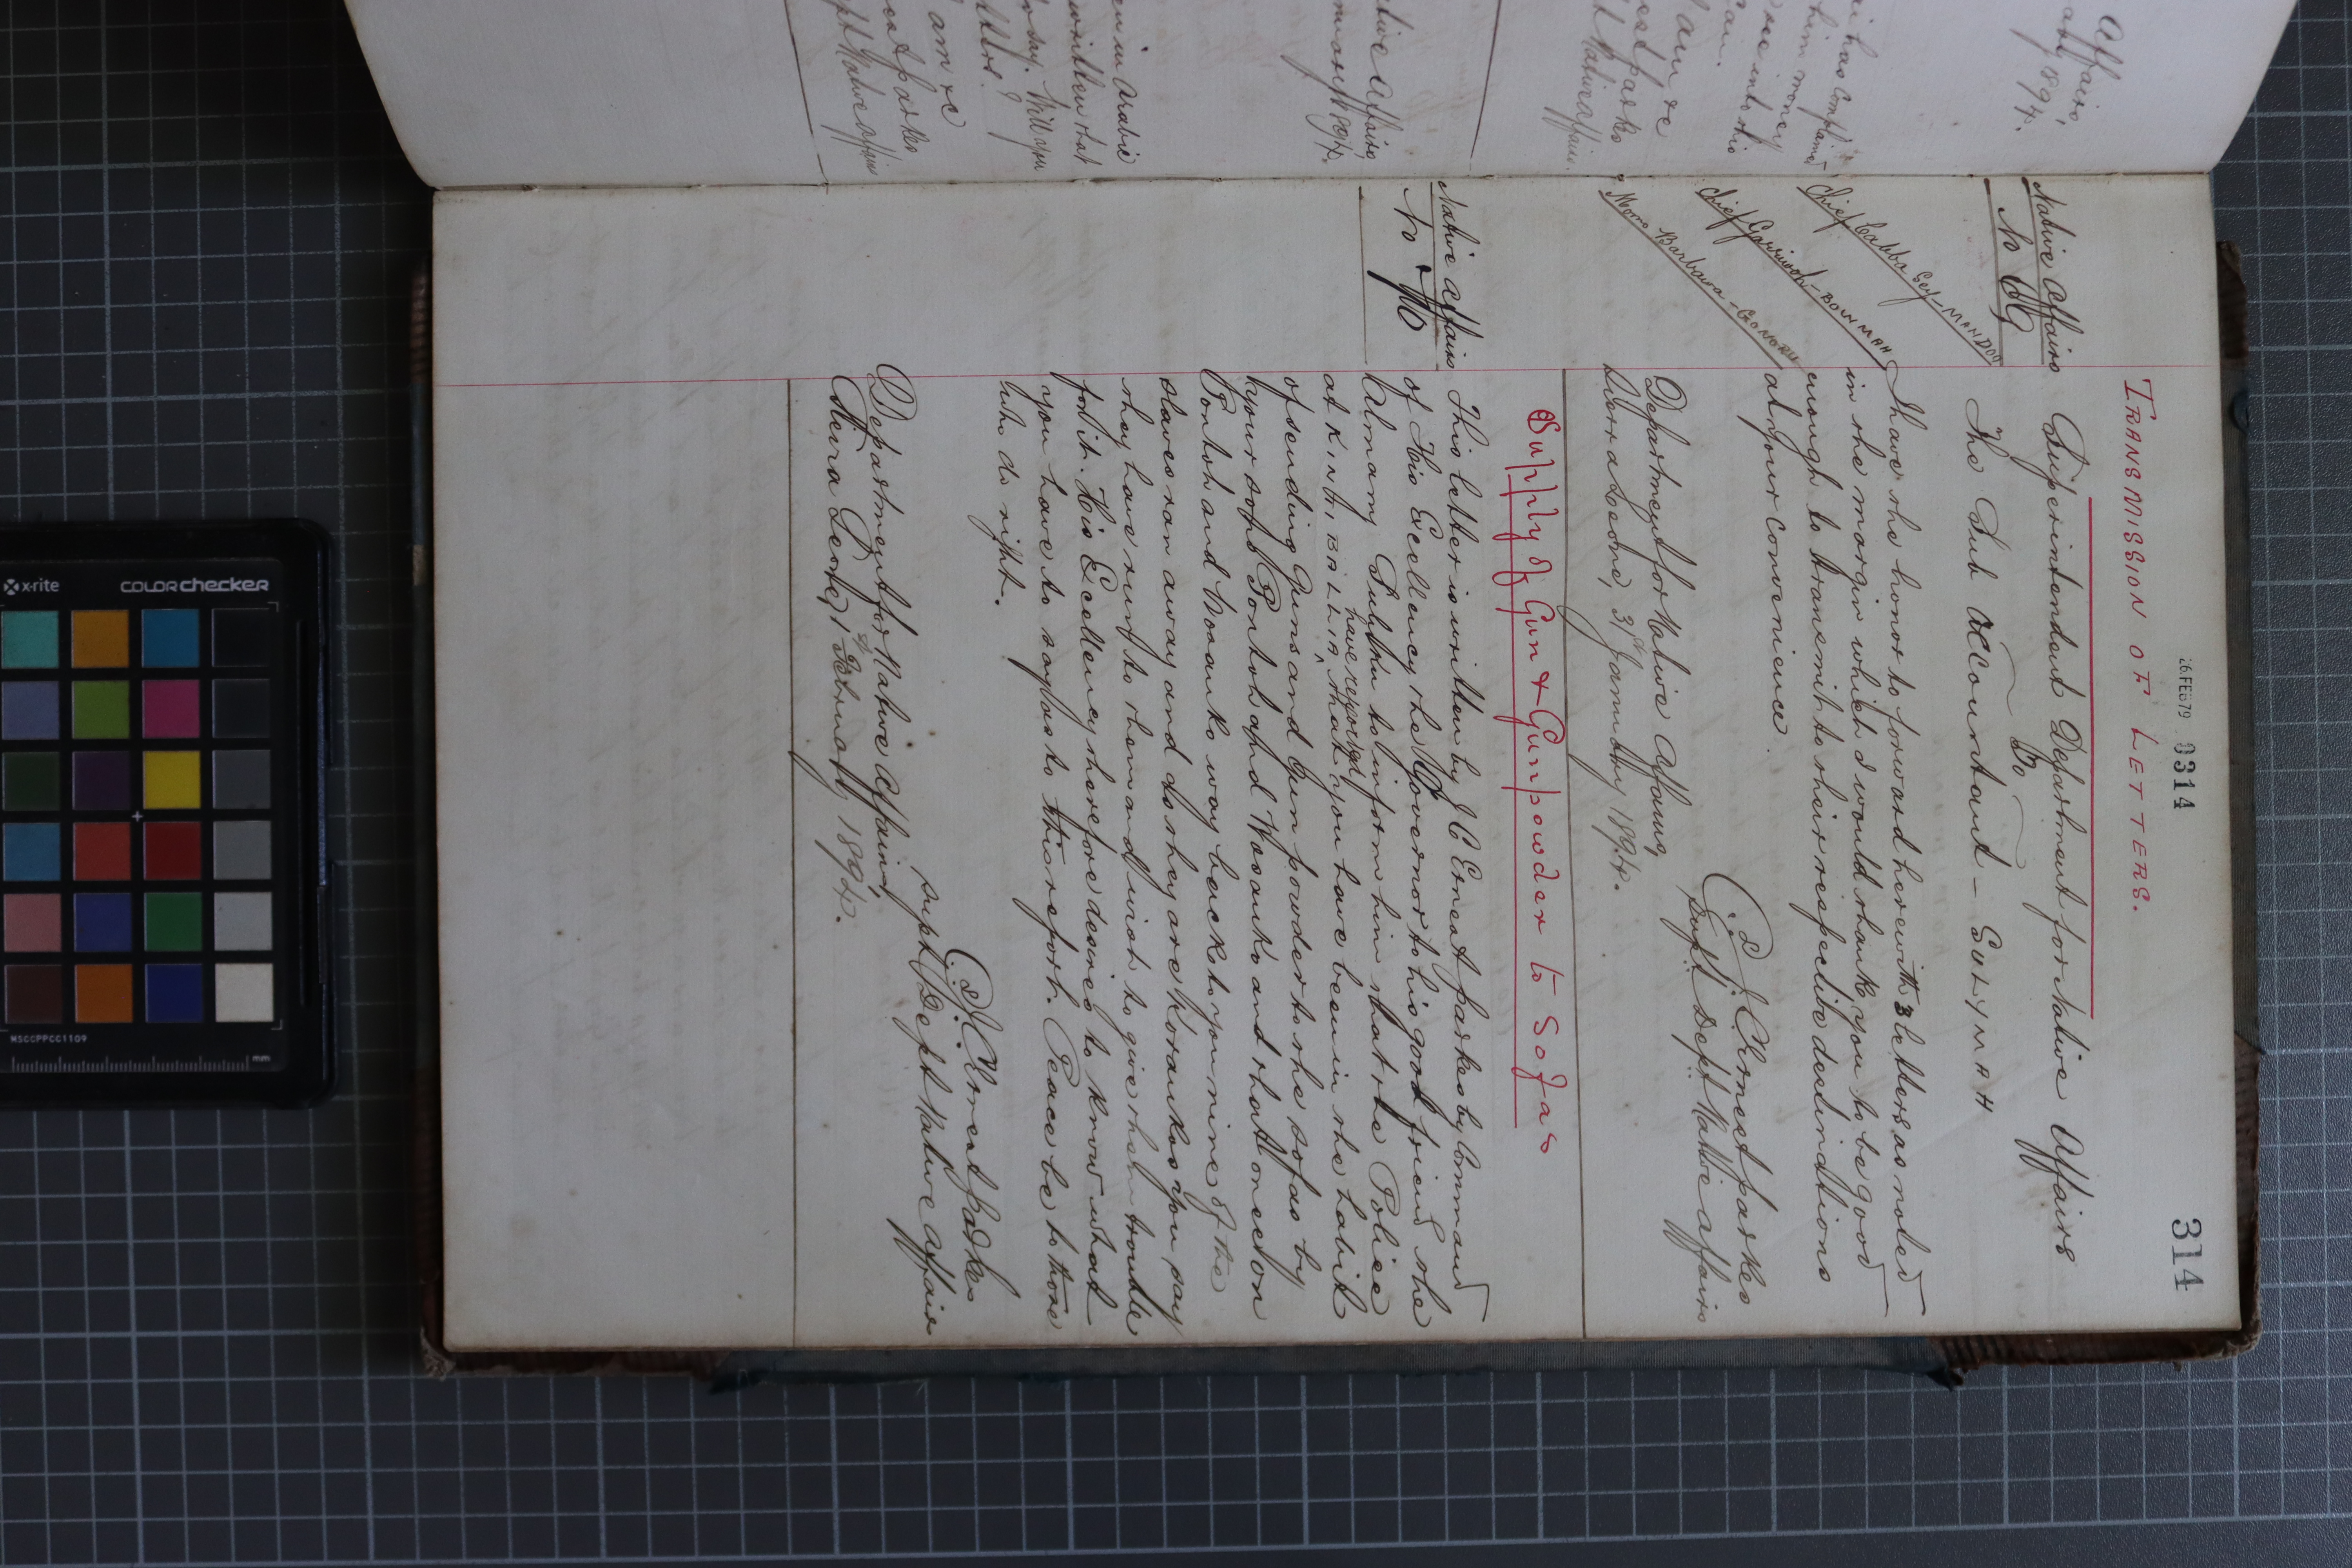 314
26 FEB 79 0314
TRANSMISSION OF LETTERS.
Native Affairs
No 69
Superintendent Department for Native Affairs
To
The Sub Accountant — SULYMAH
Chief Cabba Sey - MANDOO
Chief Garrison - BOWMAH
Momo Barbara - GONORU
I have the honor to forward herewith 3 letters as noted
in the margin which I would thank you to be good
enough to transmit to their respective destinations
at your convenience.
J. C. Ernest Parkes
Supt Dept Native Affairs
Department for Native Affairs,
Sierra Leone, 31st January 1894.
Supply of Gun & Gunpowder to Sofas
Native Affairs
No 70
This letter is written by J C Ernest Parkes by Command
of His Excellency the Governor to his good friend the
Almamy to inform him that the Police
at KINTIBALLIA have reported that you have been in the habit
of sending Guns and Gun powder to the Sofas by
your sons Pontoh and and that one
Pontoh and way back to you nine of the
slaves ran away and as they are Korankos you say
they have runt to them and wish to give them trouble
for it. His Excellency therefore desires to know what
you have to say as to this report. Peace be to those
who do right.
J. C. Ernest Parkes
Supt Dept Native Affairs
Department for Native Affairs,
Sierra Leone, 1st February, 1894.
Affairs,
1894.
has complained
him money
see into the
I am &c
Parkes
Native Affairs
Native Affairs,
1894.
in Arabic
written that
to say. Will you
I am &c
Parkes
Native Affairs
x-rite
COLORchecker
MSCCPPCC1109
mm